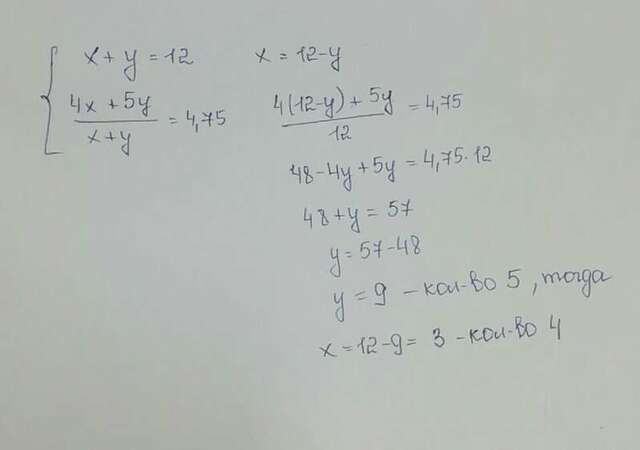 x + y = 12
4x + 5y
x + y
= 4,75
x = 12 - y
4(12 - y) + 5y
12
= 4,75
48 - 4y + 5y = 4,75 · 12
48 + y = 57
y = 57 - 48
y = 9 - кол-во 5, тогда
x = 12 - 9 = 3 - кол-во 4